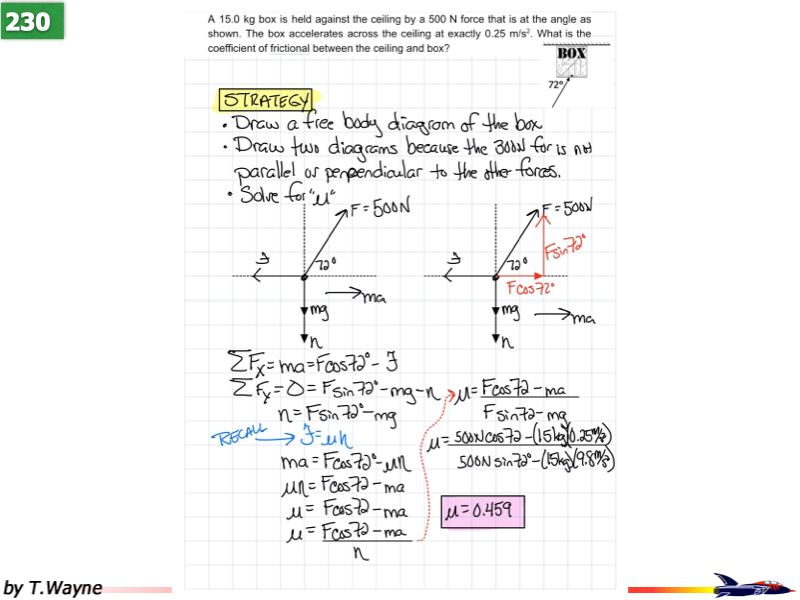 230
A 15.0 kg box is held against the ceiling by a 500 N force that is at the angle as
shown. The box accelerates across the ceiling at exactly 0.25 m/s². What is the
coefficient of frictional between the ceiling and box?
BOX
72º
STRATEGY
• Draw a free body diagram of the box
• Draw two diagrams because the 300N for is not
parallel or perpendicular to the other forces.
• Solve for "μ"
F = 500N
F = 500N
Fsin72°
72°
72°
Fcos72°
ma
ma
mg
mg
n
n
ΣFx = ma = Fcos72° - f
ΣFy = 0 = Fsin72° - mg - n
n = Fsin72° - mg
RECALL → f = μn
ma = Fcos72° - μn
μn = Fcos72 - ma
μ = Fcos72 - ma
μ = Fcos72 - ma
n
μ = Fcos72 - ma
Fsin72 - mg
μ = 500Ncos72 - (15kg)(0.25m/s²)
500Nsin72° - (15kg)(9.8m/s²)
μ = 0.459
by T.Wayne